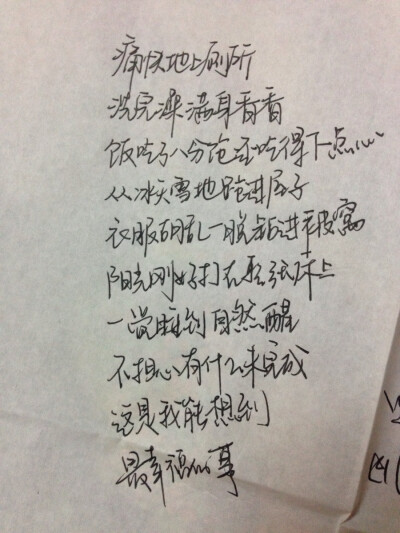 痛快地上厕所
洗完澡满身香香
饭吃了八分饱还吃得下点心
从冰天雪地跑进屋子
衣服胡乱一脱钻进被窝
阳光刚好打在整张床上
一觉睡到自然醒
不担心有什么未完成
这是我能想到
最幸福的事